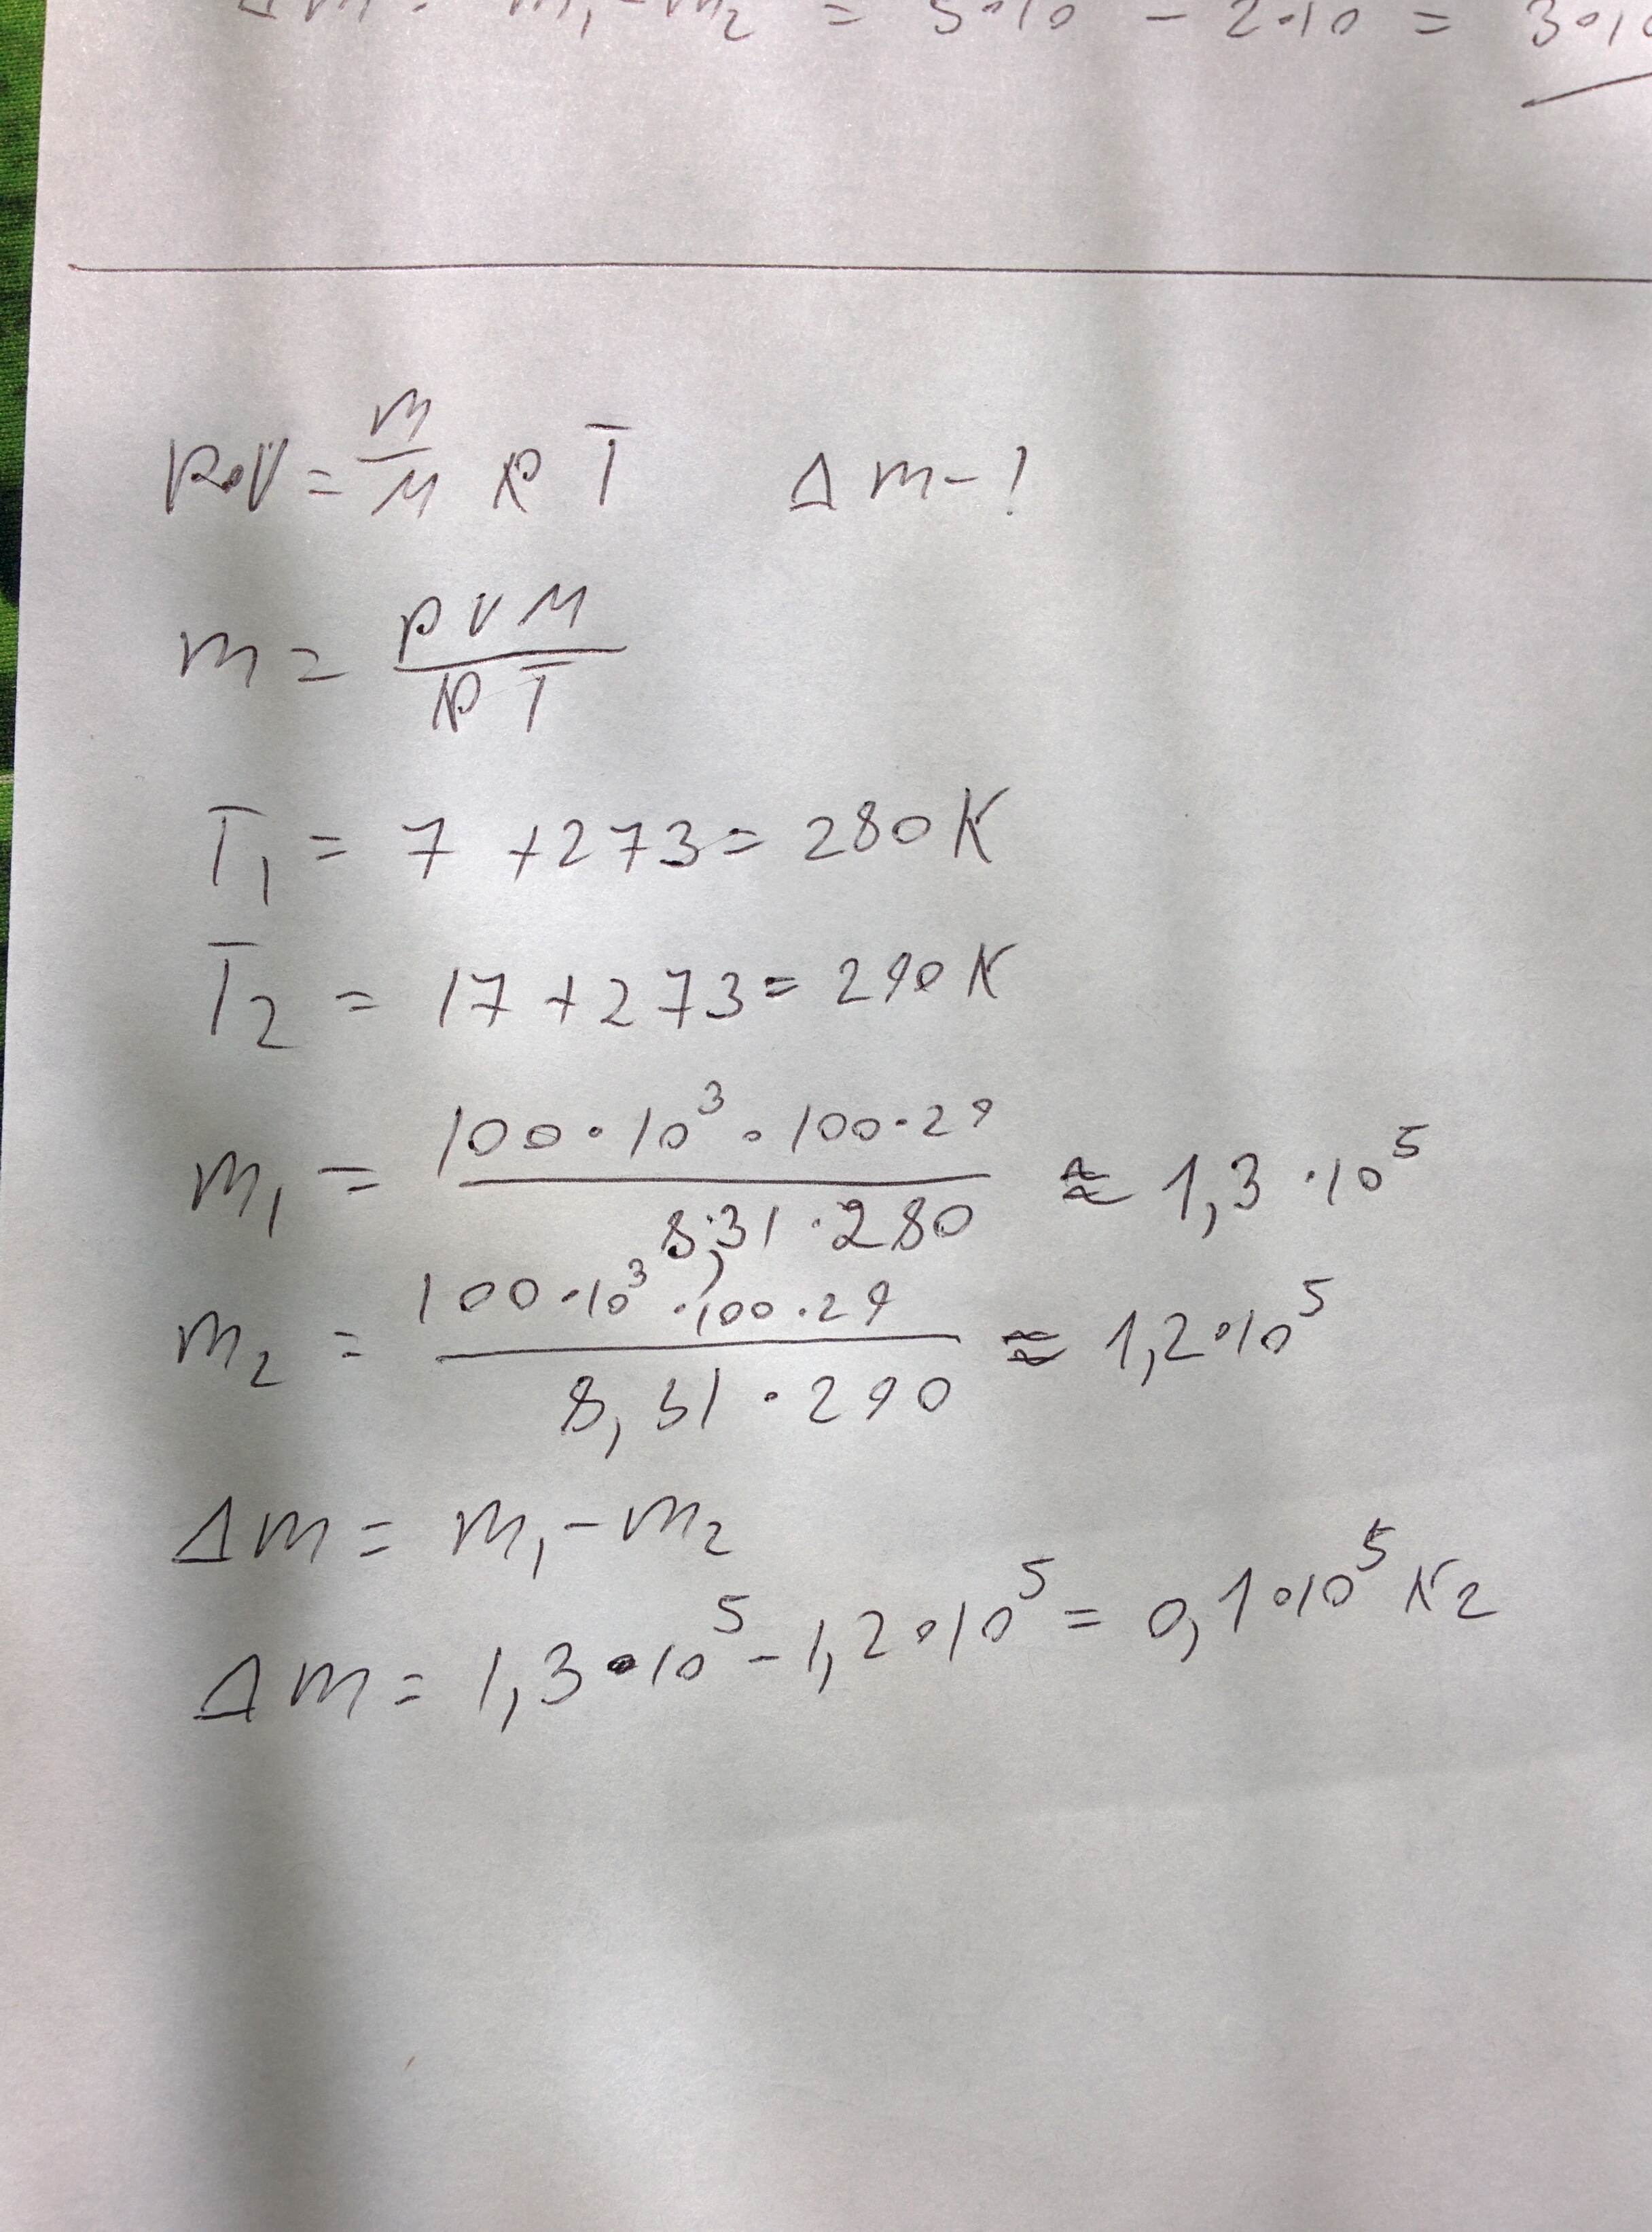 Δm = m₁ - m₂ = 5·10 - 2·10 = 3·10
p·V = m/M R T Δm - ?
m = pVM/RT
T₁ = 7 + 273 = 280 K
T₂ = 17 + 273 = 290 K
m₁ = 100·10³·100·29 / 8,31·280 ≈ 1,3·10⁵
m₂ = 100·10³·100·29 / 8,31·290 ≈ 1,2·10⁵
Δm = m₁ - m₂
Δm = 1,3·10⁵ - 1,2·10⁵ = 0,1·10⁵ кг